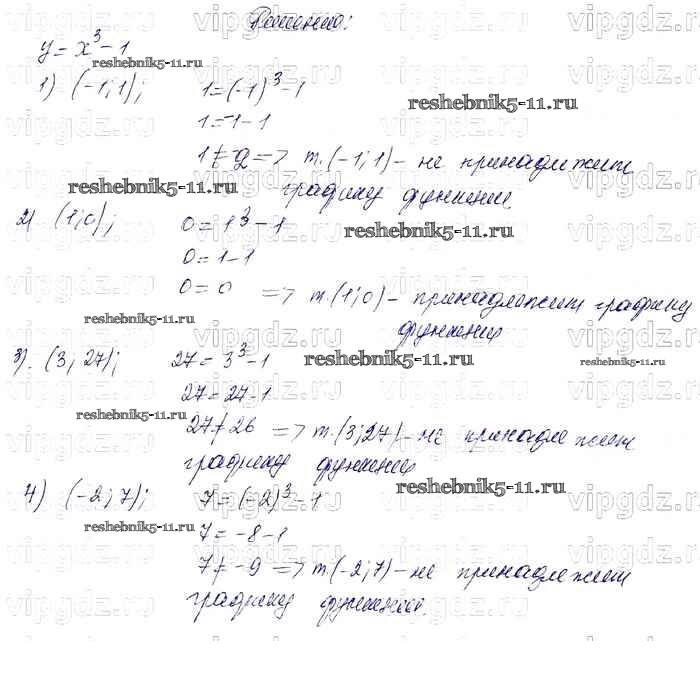 Решение:
y = x³ - 1
reshebnik5-11.ru
1) (-1; 1); 1 = (-1)³ - 1
reshebnik5-11.ru
1 = -1 - 1
1 ≠ -2 => т. (-1; 1) - не принадлежит
reshebnik5-11.ru
графику функции
2) (1; 0); 0 = 1³ - 1
reshebnik5-11.ru
0 = 1 - 1
0 = 0 => т. (1; 0) - принадлежит графику
reshebnik5-11.ru
функции
3). (3; 27); 27 = 3³ - 1
reshebnik5-11.ru
reshebnik5-11.ru
27 = 27 - 1
reshebnik5-11.ru
27 ≠ 26 => т. (3; 27) - не принадлежит
графику функции
4) (-2; 7); 7 = (-2)³ - 1
reshebnik5-11.ru
reshebnik5-11.ru
7 = -8 - 1
7 ≠ -9 => т. (-2; 7) - не принадлежит
графику функции.
vipgdz.ru